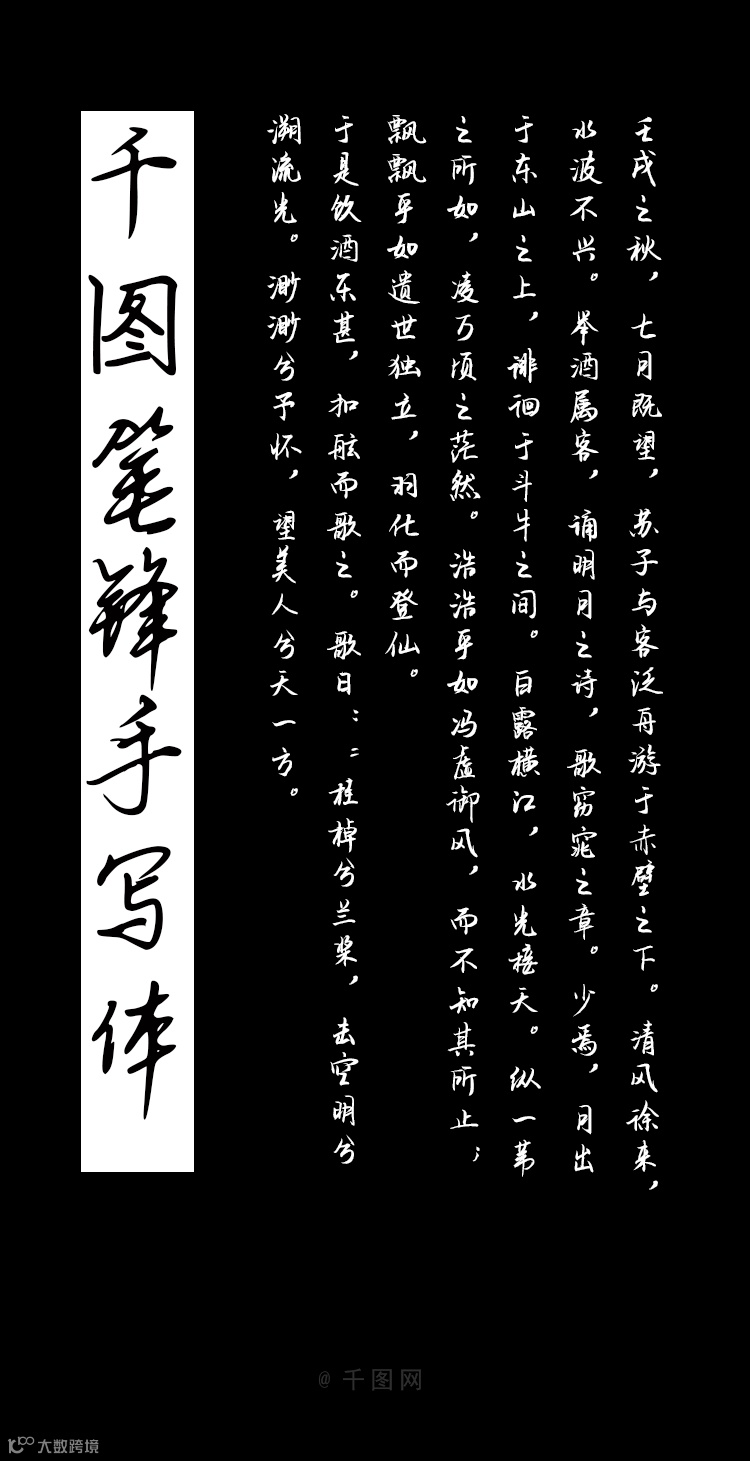 千图笔锋手写体
壬戌之秋，七月既望，苏子与客泛舟游于赤壁之下。清风徐来，
水波不兴。举酒属客，诵明月之诗，歌窈窕之章。少焉，月出
于东山之上，徘徊于斗牛之间。白露横江，水光接天。纵一苇
之所如，凌万顷之茫然。浩浩乎如冯虚御风，而不知其所止；
飘飘乎如遗世独立，羽化而登仙。
于是饮酒乐甚，扣舷而歌之。歌曰：“桂棹兮兰桨，击空明兮
溯流光。渺渺兮予怀，望美人兮天一方。
@千图网
大数跨境